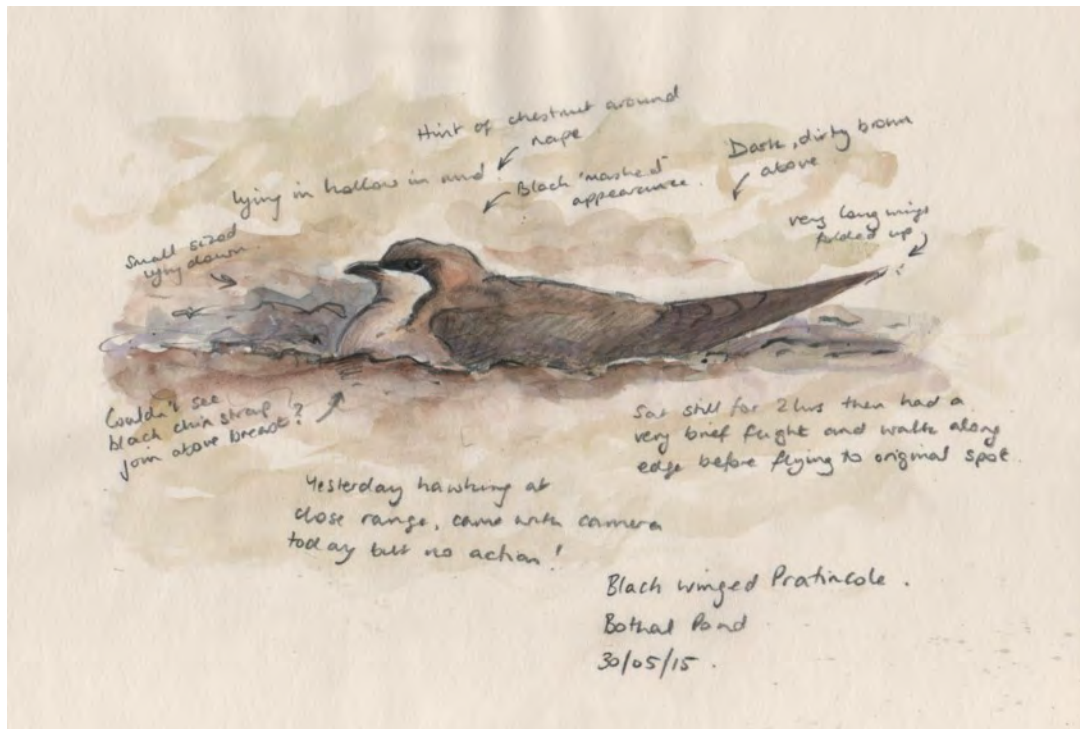 Hint of chestnut around
nape
lying in hollow in mud.
Black 'masked'
appearance.
Dark, dirty brown
above
very long wings
folded up
Small sized
lying down.
Couldn't see
black chin strap
join above breast?
Sat still for 2 hrs then had a
very brief flight and walk along
edge before flying to original spot.
Yesterday hawking at
close range, came with camera
today but no action!
Black winged Pratincole.
Bothal Pond
30/05/15.